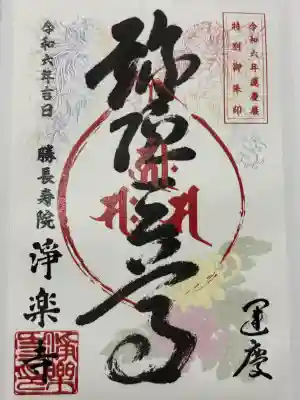 令和六年運慶展
特別御朱印
弥陀三尊
運慶
令和六年吉日
勝長寿院
浄楽寺